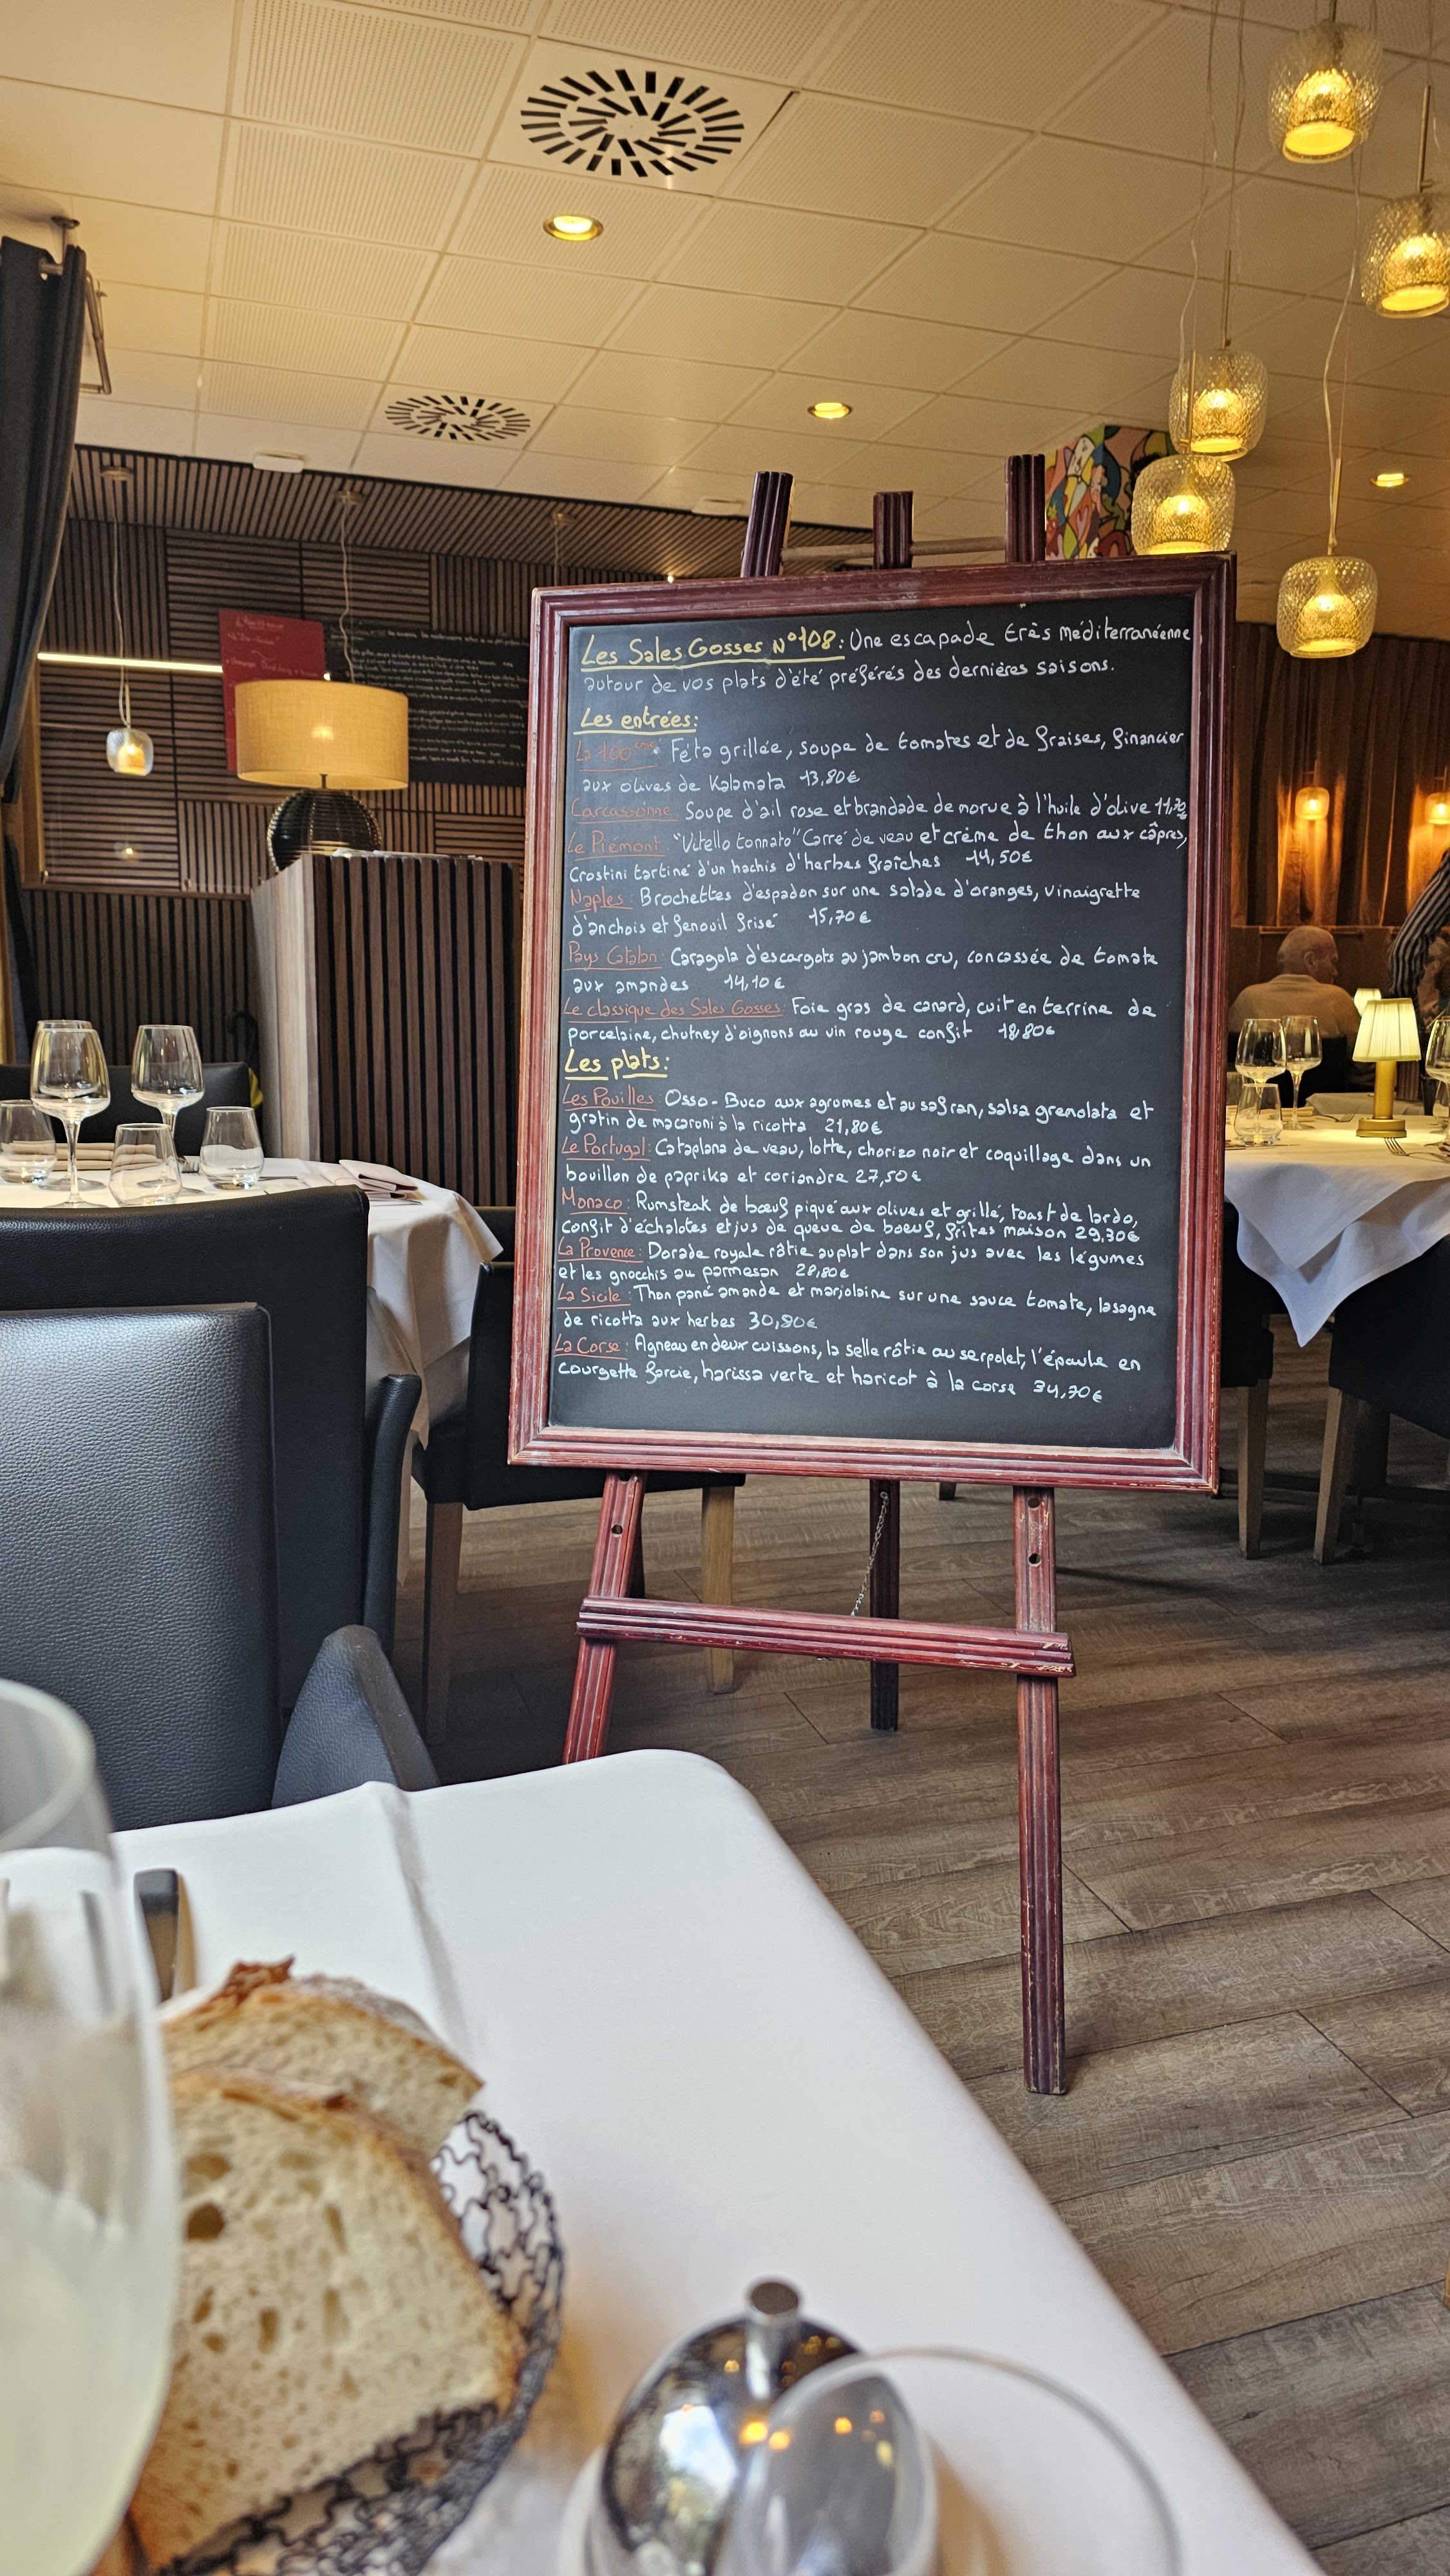 Les Sales Gosses N°108: Une escapade très méditerranéenne
autour de vos plats d'été préférés des dernières saisons.
Les entrées:
La 100ème: Féta grillée, soupe de tomates et de fraises, financier
aux olives de Kalamata 13,80€
Carcassonne: Soupe d'ail rose et brandade de morue à l'huile d'olive 11,70€
Le Piémont: "Vitello tonnato" Carré de veau et crème de thon aux câpres,
Crostini tartiné d'un hachis d'herbes fraîches 14,50€
Naples: Brochettes d'espadon sur une salade d'oranges, vinaigrette
d'anchois et fenouil frisé 15,70€
Pays Catalan: Caragola d'escargots au jambon cru, concassée de tomate
aux amandes 14,10€
Le classique des Sales Gosses: Foie gras de canard, cuit en terrine de
porcelaine, chutney d'oignons au vin rouge confit 18,80€
Les plats:
Les Pouilles: Osso-Buco aux agrumes et au safran, salsa gremolata et
gratin de macaroni à la ricotta 21,80€
Le Portugal: Cataplana de veau, lotte, chorizo noir et coquillage dans un
bouillon de paprika et coriandre 27,50€
Monaco: Rumsteak de bœuf piqué aux olives et grillé, toast de lardo,
confit d'échalotes et jus de queue de boeuf, frites maison 29,30€
La Provence: Dorade royale rôtie au plat dans son jus avec les légumes
et les gnocchis au parmesan 28,80€
La Sicile: Thon pané amande et marjolaine sur une sauce tomate, lasagne
de ricotta aux herbes 30,80€
La Corse: Agneau en deux cuissons, la selle rôtie au serpolet, l'épaule en
courgette farcie, harissa verte et haricot à la corse 34,70€